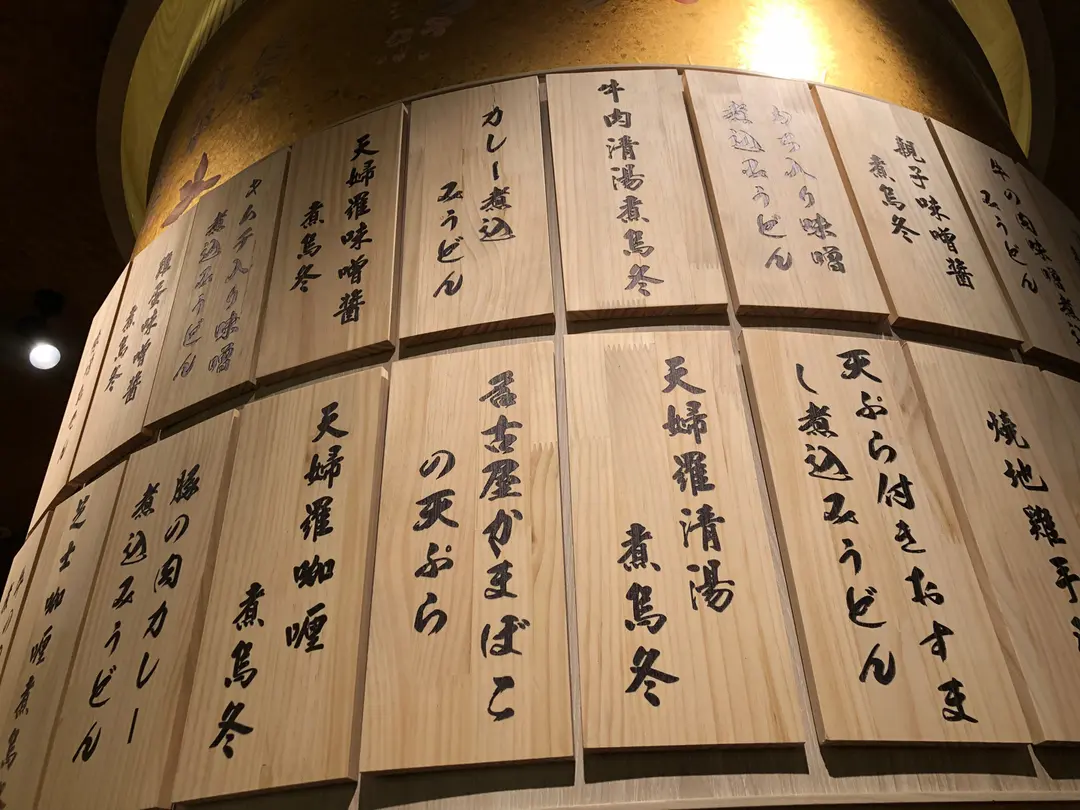 牛の肉味噌煮込
みうどん
親子味噌醬
煮烏冬
入り味噌
煮込みうどん
牛肉清湯煮烏冬
カレー煮込
みうどん
天婦羅味噌醬
煮烏冬
キムチ入り味噌
煮込みうどん
蛋味噌醬
煮烏冬
焼地雞手
天ぷら付きおすま
し煮込みうどん
天婦羅清湯
煮烏冬
名古屋かまぼこ
の天ぷら
天婦羅咖喱
煮烏冬
豚の肉カレー
煮込みうどん
芝士咖喱煮烏